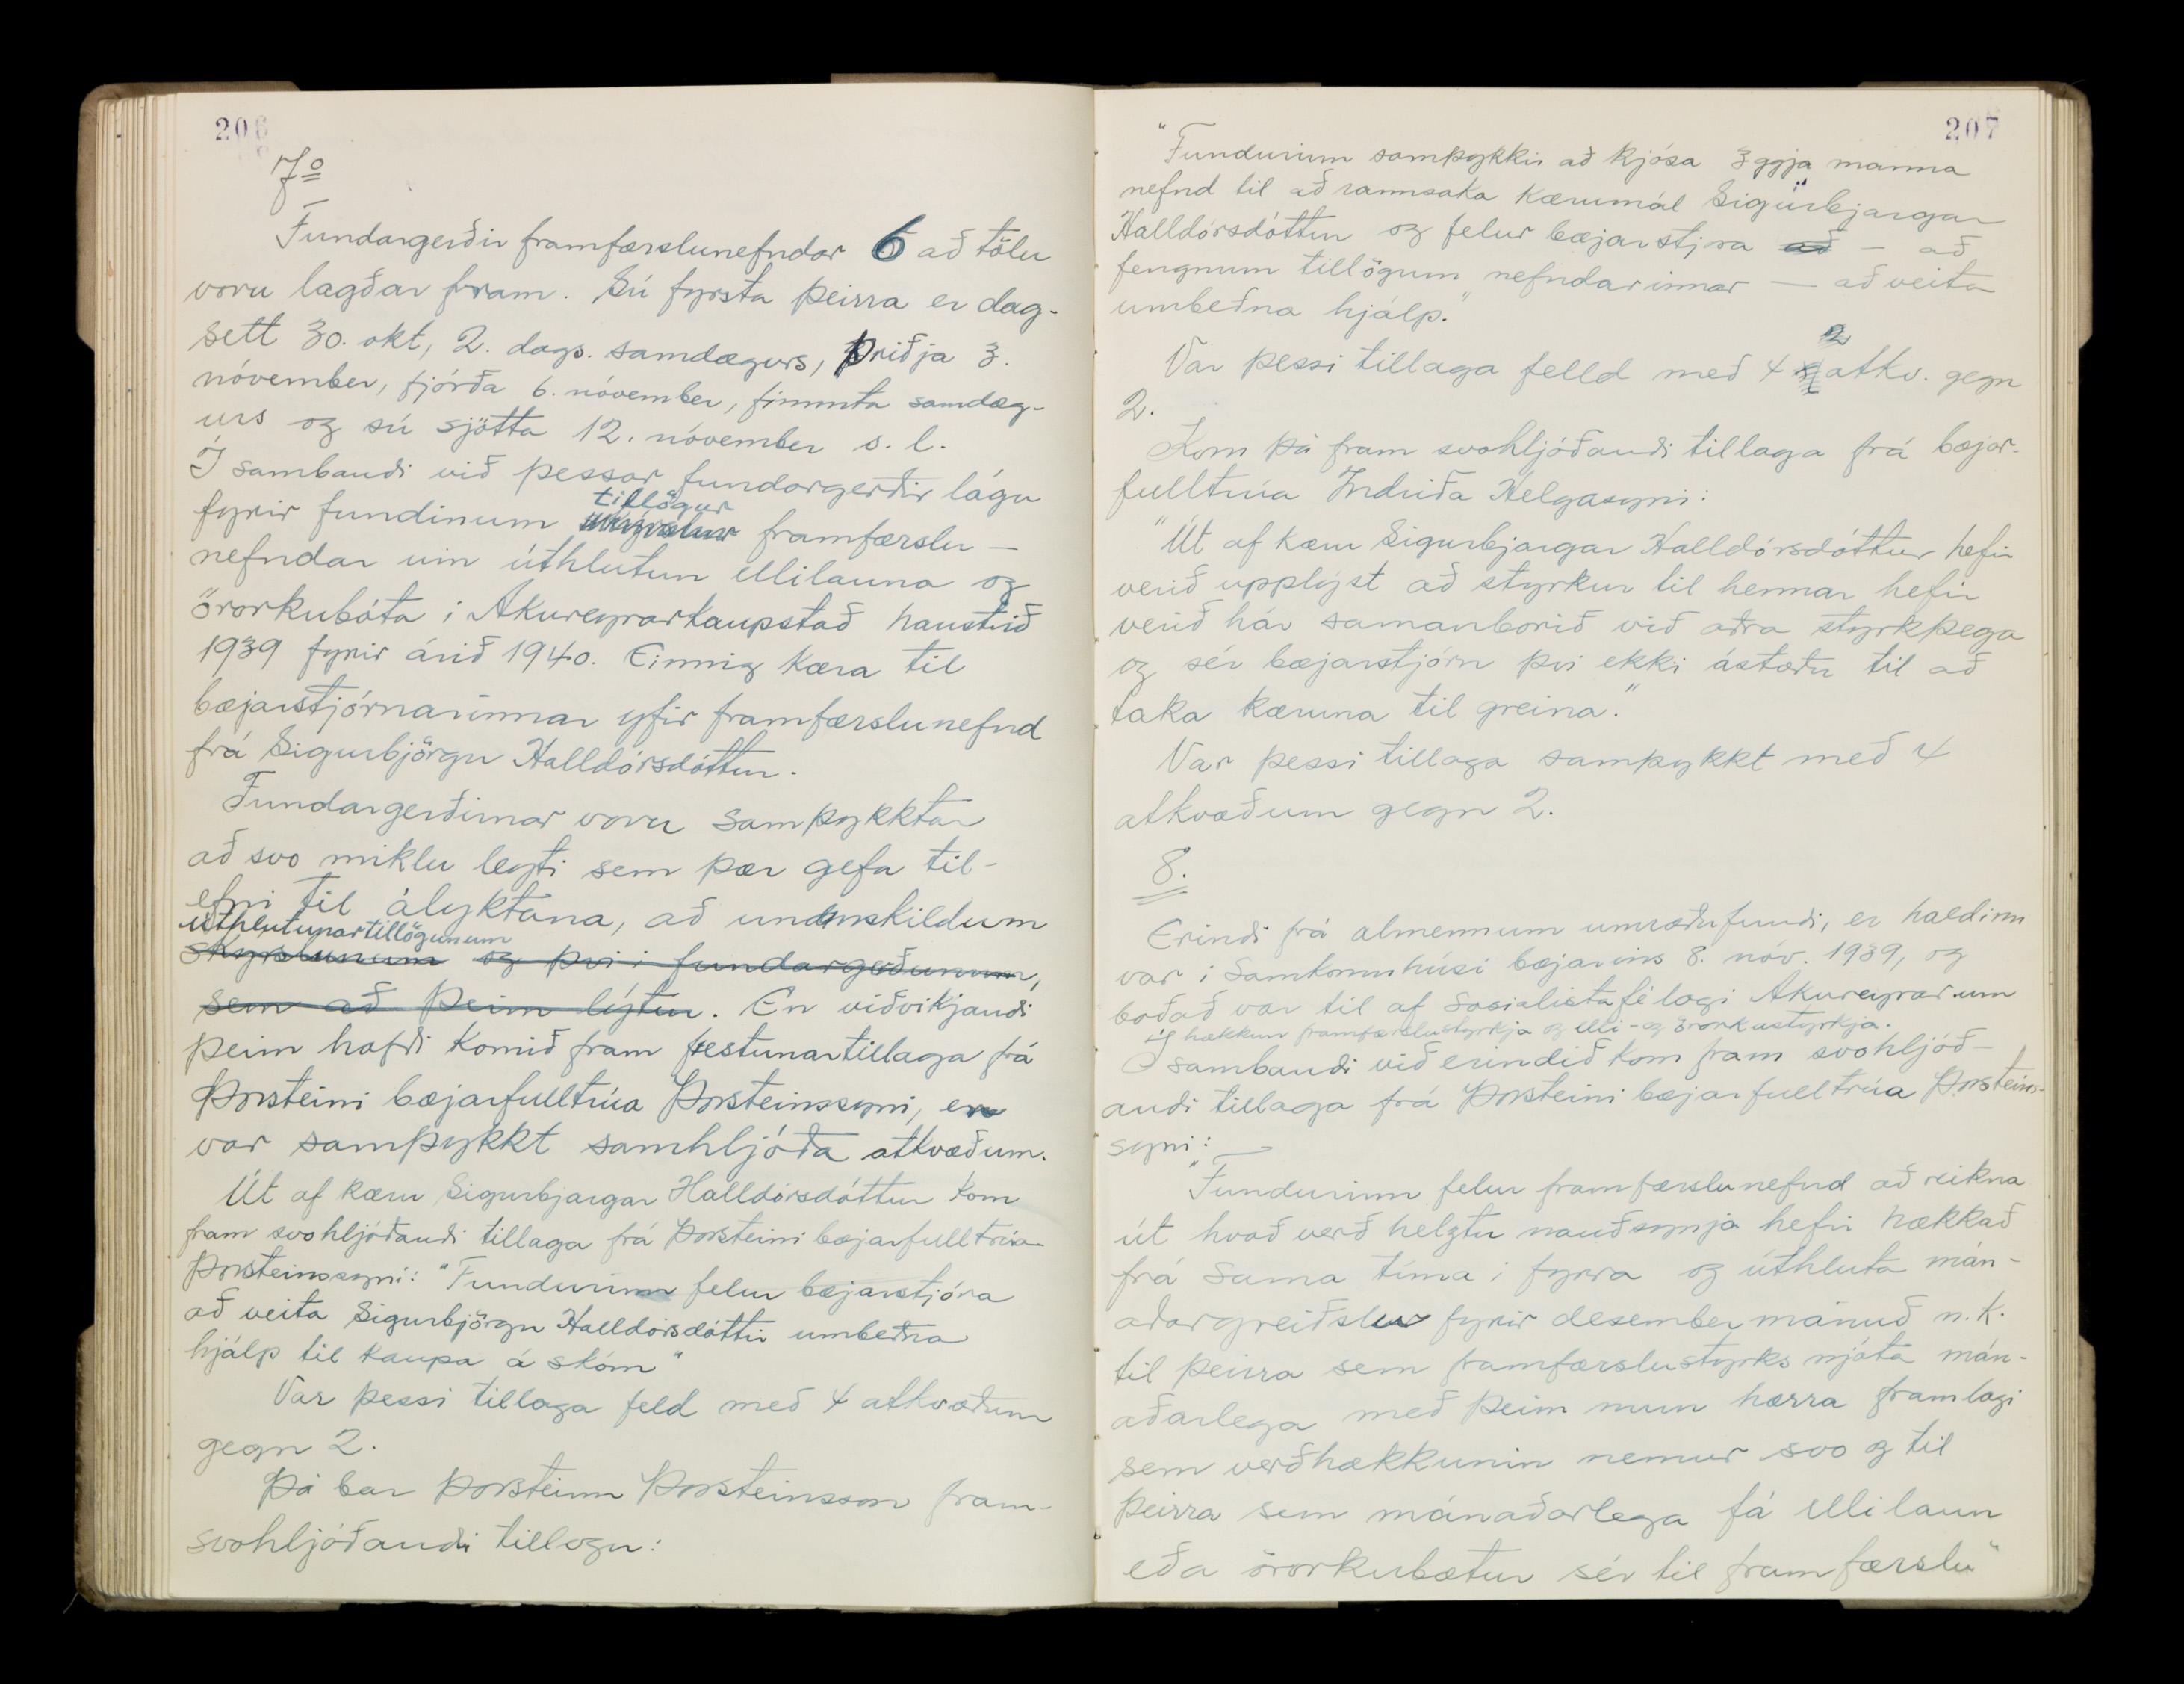 206
7º
Fundargerðir framfærslunefndar 6 að tölu
voru lagðar fram. Sú fyrsta þeirra er dag-
sett 30. okt, 2. dags. samdægurs, þriðja 3.
nóvember, fjórða 6. nóvember, fimmta samdæg-
urs og sú sjötta 12. nóvember s.l.
Í sambandi við þessar fundargerðir lágu
tillögur
fyrir fundinum framfærslu-
nefndar um úthlutun ellilauna og
örorkubóta í Akureyrarkaupstað haustið
1939 fyrir árið 1940. Einnig kæra til
bæjarstjórnarinnar yfir framfærslunefnd
frá Sigurbjörgu Halldórsdóttur.
Fundargerðirnar voru samþykktar
að svo miklu leyti sem þær gefa til-
efni til ályktana, að undanskildum
úthlutunartillögunum
skýrslunum og því í fundargerðunum,
sem að þeim lýtur. En viðvíkjandi
þeim hafði komið fram frestunartillaga frá
Þorsteini bæjarfulltrúa Þorsteinssyni, er
var samþykkt samhljóða atkvæðum.
Út af kæru Sigurbjargar Halldórsdóttur kom
fram svohljóðandi tillaga frá Þorsteini bæjarfulltrúa
Þorsteinssyni: "Fundurinn felur bæjarstjóra
að veita Sigurbjörgu Halldórsdóttir umbeðna
hjálp til kaupa á skóm"
Var þessi tillaga feld með 4 atkvæðum
gegn 2.
Þá bar Þorsteinn Þorsteinsson fram
svohljóðandi tillögu:
207
"Fundurinn samþykkir að kjósa 3ggja manna
nefnd til að rannsaka kærumál Sigurbjargar
Halldórsdóttur og felur bæjarstjra að - að
fengnum tillögum nefndarinnar - að veita
umbeðna hjálp."
2
Var þessi tillaga felld með 4 atkv. gegn
2.
Kom þá fram svohljóðandi tillaga frá bæjar-
fulltrúa Indriða Helgasyni:
"Út af kæru Sigurbjargar Halldórsdóttur hefir
verið upplýst að styrkur til hennar hefir
verið hár samanborið við aðra styrkþega
og sér bæjarstjórn því ekki ástæðu til að
taka kæruna til greina."
Var þessi tillaga samþykkt með 4
atkvæðum gegn 2.
8.
Erindi frá almennum umræðufundi, er haldinn
var í Samkomuhúsi bæjarins 8. nóv. 1939, og
boðað var til af Sosialistafélagi Akureyrar um
hækkun framfærslustyrkja og elli- og örorkustyrkja.
Í sambandi við erindið kom fram svohljóð-
andi tillaga frá Þorsteini bæjarfulltrúa Þorsteins-
syni:
"Fundurinn felur framfærslunefnd að reikna
út hvað verð helztu nauðsynja hefir hækkað
frá sama tíma í fyrra og úthluta mán-
aðargreiðslur fyrir desembermánuð n.k.
til þeirra sem framfærslustyrks njóta mán-
aðarlega með þeim mun hærra framlagi
sem verðhækkunin nemur svo og til
þeirra sem mánaðarlega fá ellilaun
eða örorkubætur sér til framfærslu"